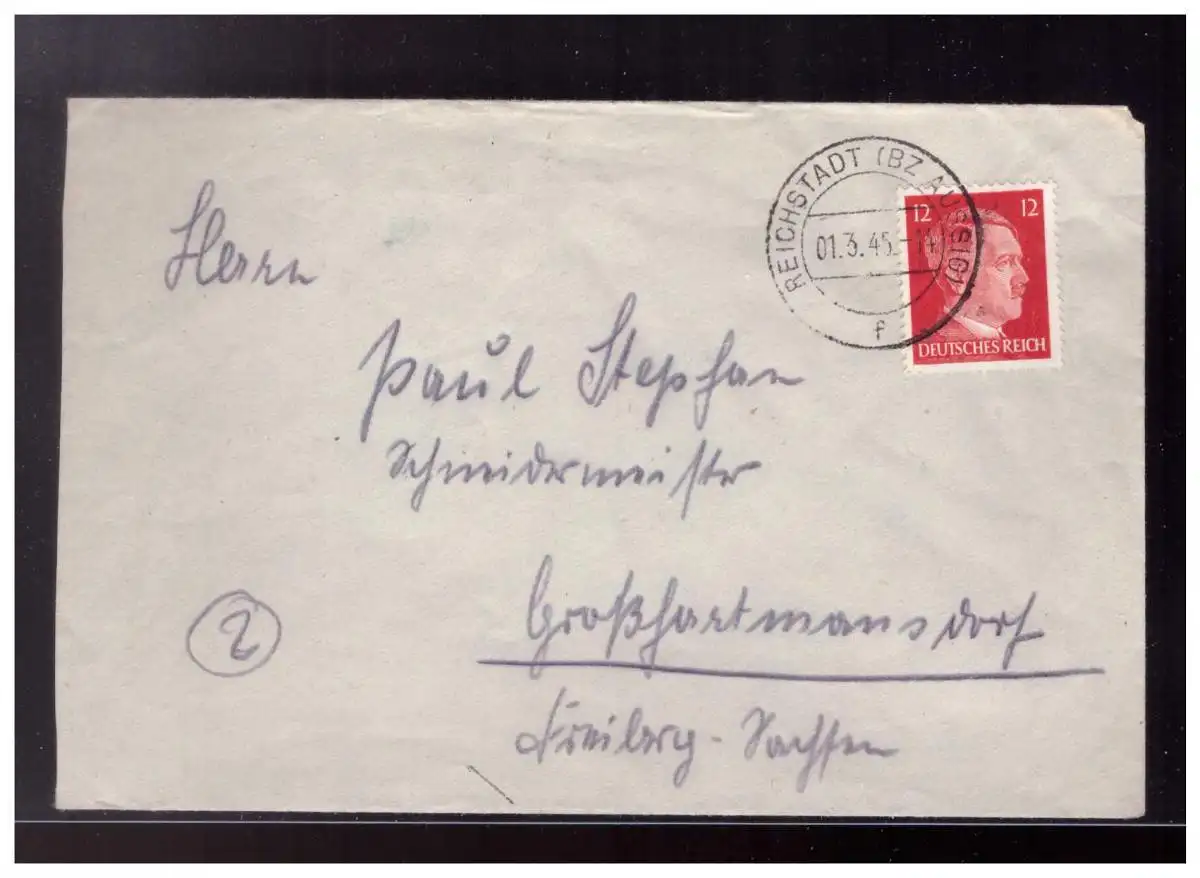 REICHSTADT (BZ AUSSIG)
01.3.45.-14
f
12 12
DEUTSCHES REICH
Herrn
Paul Stephan
Schneidermeister
2
Großhartmansdorf
Freiberg - Sachsen